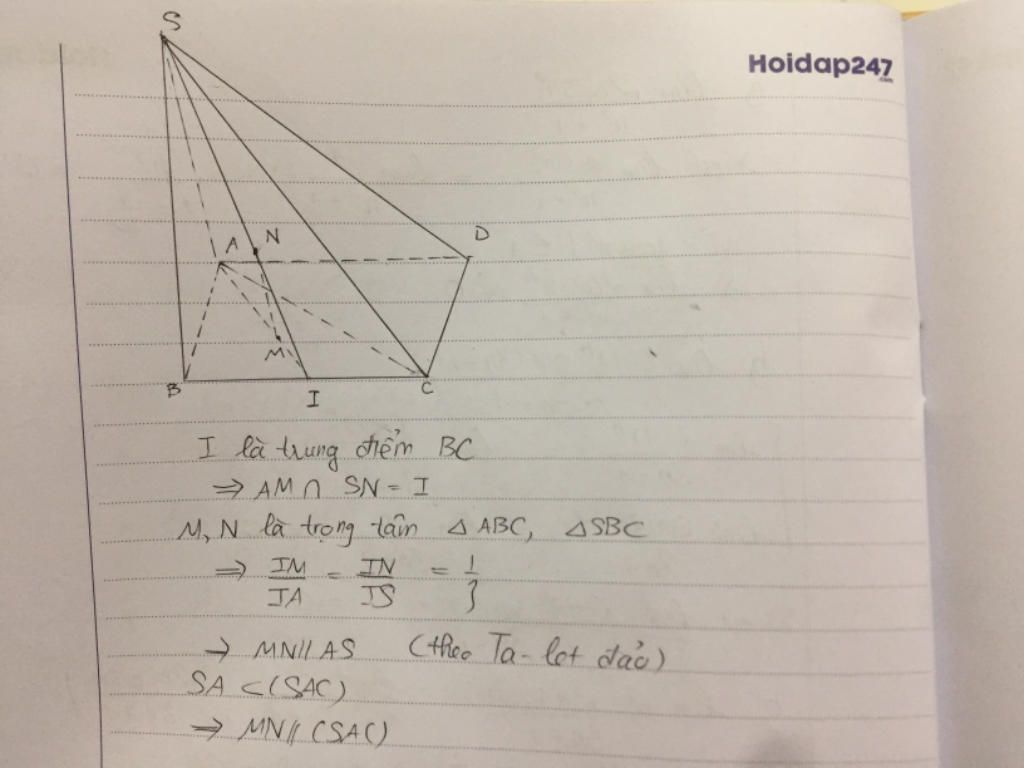 S
Hoidap247
.com
A N D
M
B I C
I là trung điểm BC
⇒ AM ∩ SN = I
M, N là trọng tâm △ ABC, △SBC
⇒ IM/IA = IN/IS = 1/3
→ MN // AS (theo Ta-let đảo)
SA ⊂ (SAC)
⇒ MN // (SAC)